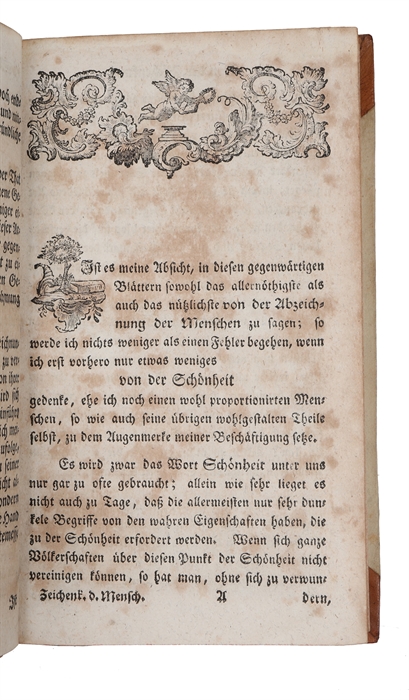 Ist es meine Absicht, in diesen gegenwärtigen
Blättern sowohl das allernöthigste als
auch das nützlichste von der Abzeich-
nung der Menschen zu sagen; so
werde ich nichts weniger als einen Fehler begehen, wenn
ich erst vorhero nur etwas weniges
von der Schönheit
gedenke, ehe ich noch einen wohl proportionirten Men-
schen, so wie auch seine übrigen wohlgestalten Theile
selbst, zu dem Augenmerke meiner Beschäftigung setze.
Es wird zwar das Wort Schönheit unter uns
nur gar zu ofte gebraucht; allein wie sehr lieget es
nicht auch zu Tage, daß die allermeisten nur sehr dun-
kele Begriffe von den wahren Eigenschaften haben, die
zu der Schönheit erfordert werden. Wenn sich ganze
Völkerschaften über diesen Punkt der Schönheit nicht
vereinigen können, so hat man, ohne sich zu verwun-
Zeichenk. d. Mensch. A dern,